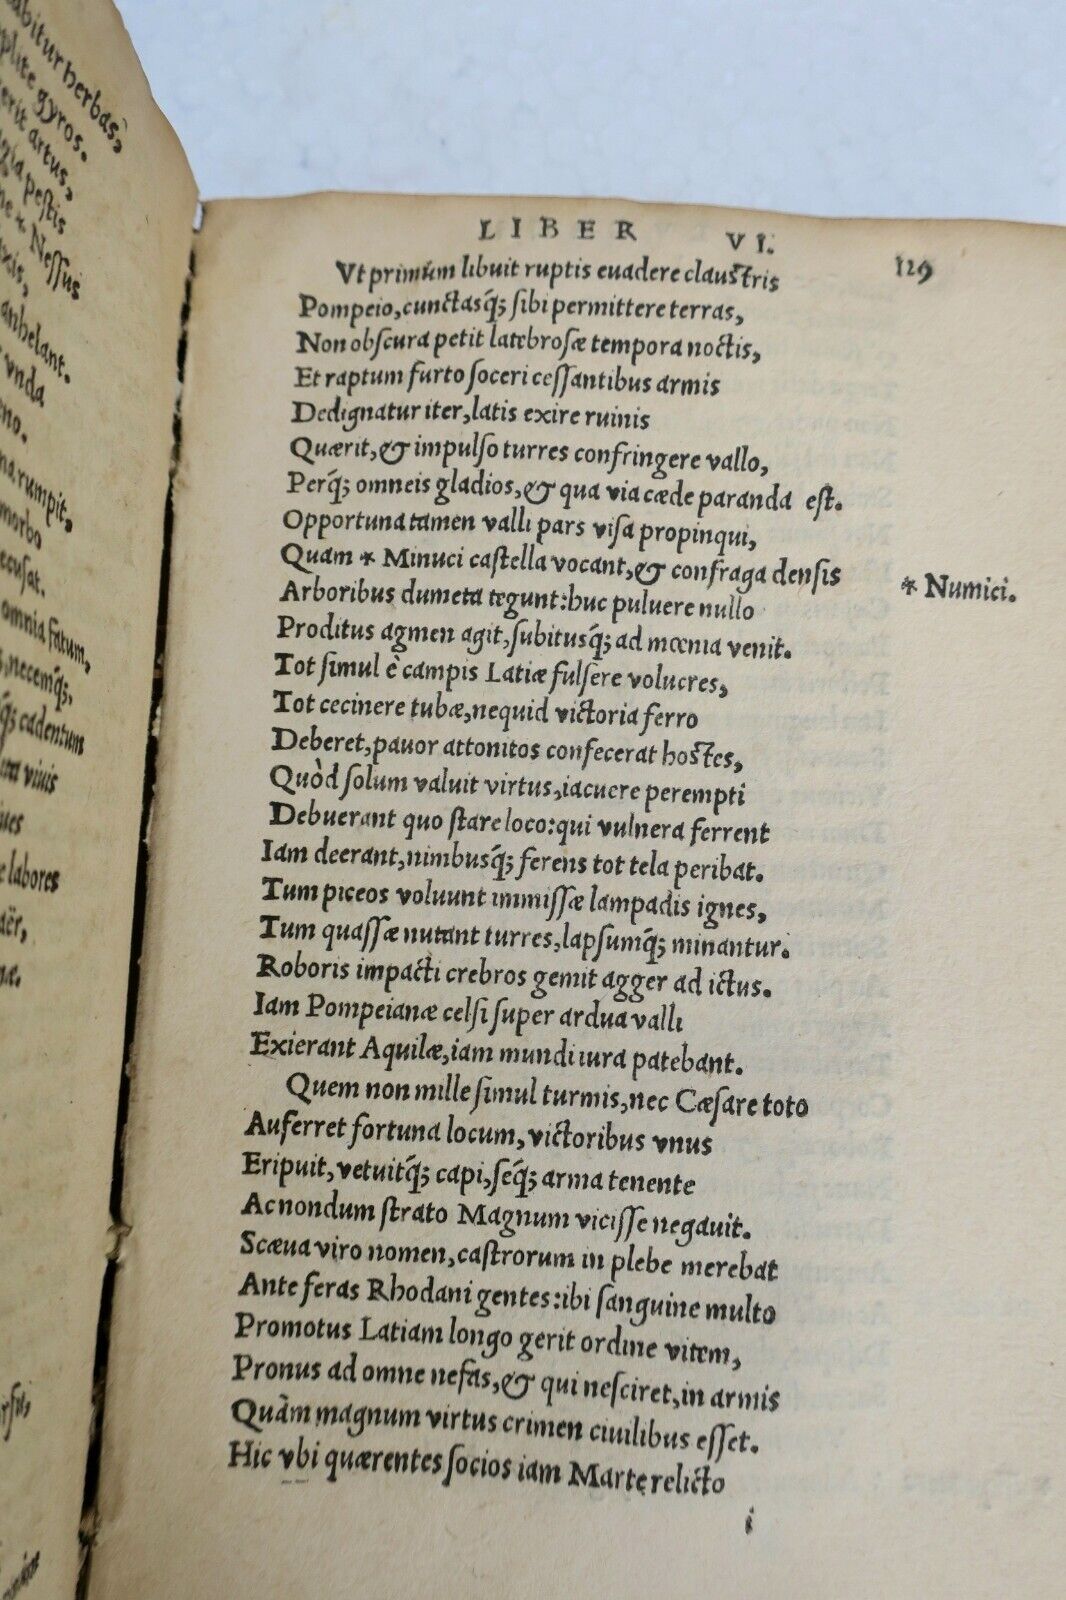 abitur herbas,
plite gyros.
erit artus,
gia pestis
ne * Nessus
xis,
anhelant.
vnda
eno.
na rumpit,
morbo
ccusat.
omnia fatum,
s, necemq́;
q́; cadentum
uta viuis
ues
e labores
aër,
næ.
LIBER VI. 129
Vt primùm libuit ruptis euadere claustris
Pompeio, cunctasq́; sibi permittere terras,
Non obscura petit latebrosæ tempora noctis,
Et raptum furto soceri cessantibus armis
Dedignatur iter, latis exire ruinis
Quærit, & impulso turres confringere vallo,
Perq́; omneis gladios, & qua via cæde paranda est.
Opportuna tamen valli pars visa propinqui,
Quam * Minuci castella vocant, & confraga densis * Numici.
Arboribus dumeta tegunt: huc puluere nullo
Proditus agmen agit, subitusq́; ad mœnia venit.
Tot simul è campis Latiæ fulsere volucres,
Tot cecinere tubæ, nequid victoria ferro
Deberet, pauor attonitos confecerat hostes,
Quòd solum valuit virtus, iacuere perempti
Debuerant quo stare loco: qui vulnera ferrent
Iam deerant, nimbusq́; ferens tot tela peribat.
Tum piceos voluunt immissæ lampadis ignes,
Tum quassæ nutant turres, lapsumq́; minantur.
Roboris impacti crebros gemit agger ad ictus.
Iam Pompeianæ celsi super ardua valli
Exierant Aquilæ, iam mundi iura patebant.
Quem non mille simul turmis, nec Cæsare toto
Auferret fortuna locum, victoribus vnus
Eripuit, vetuitq́; capi, seq́; arma tenente
Ac nondum strato Magnum vicisse negauit.
Scæua viro nomen, castrorum in plebe merebat
Ante feras Rhodani gentes: ibi sanguine multo
Promotus Latiam longo gerit ordine vitem,
Pronus ad omne nefas, & qui nesciret, in armis
Quàm magnum virtus crimen ciuilibus esset.
Hic vbi quærentes socios iam Marte relicto
i